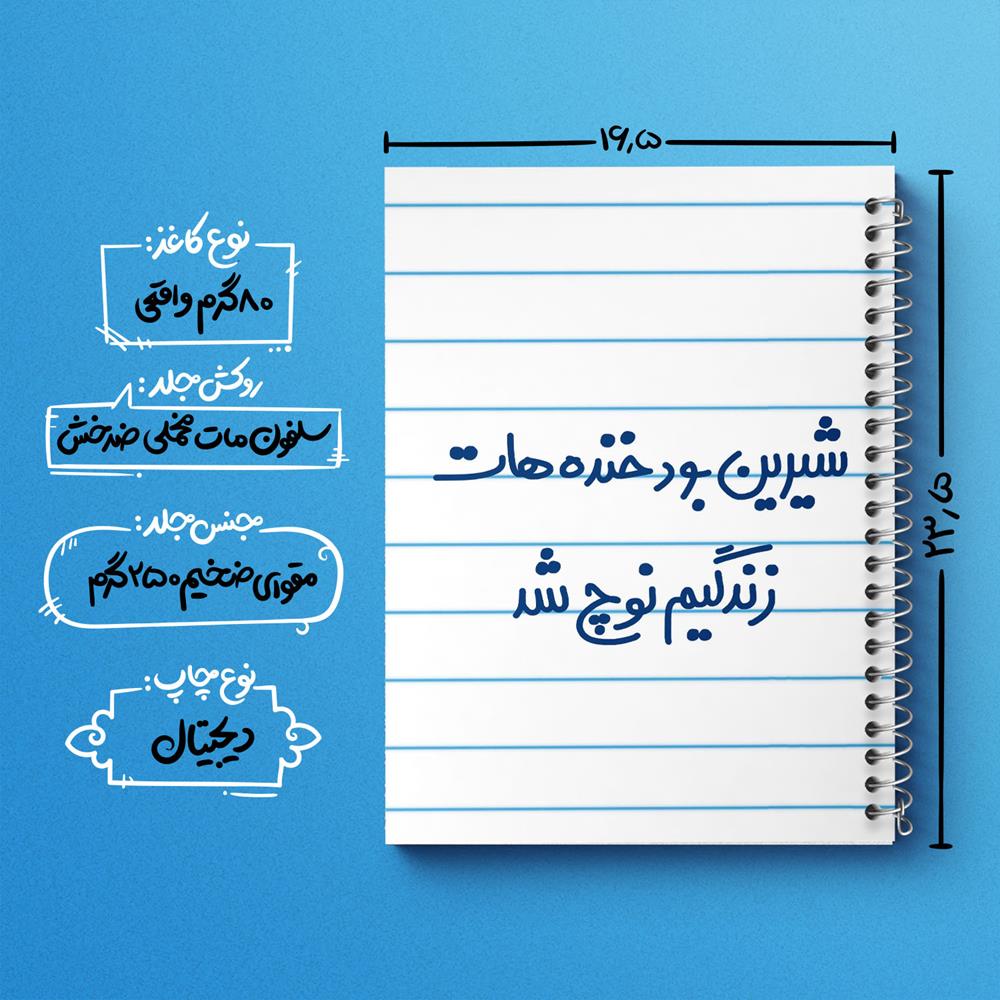 ۱۶٫۵
۲۳٫۵
شیرین بود خنده هات
زندگیم نوچ شد
نوع کاغذ:
۸۰ گرم واقعی
روکش جلد:
سلفون مات مخملی ضدخش
جنس جلد:
مقوای ضخیم ۲۵۰ گرم
نوع چاپ:
دیجیتال